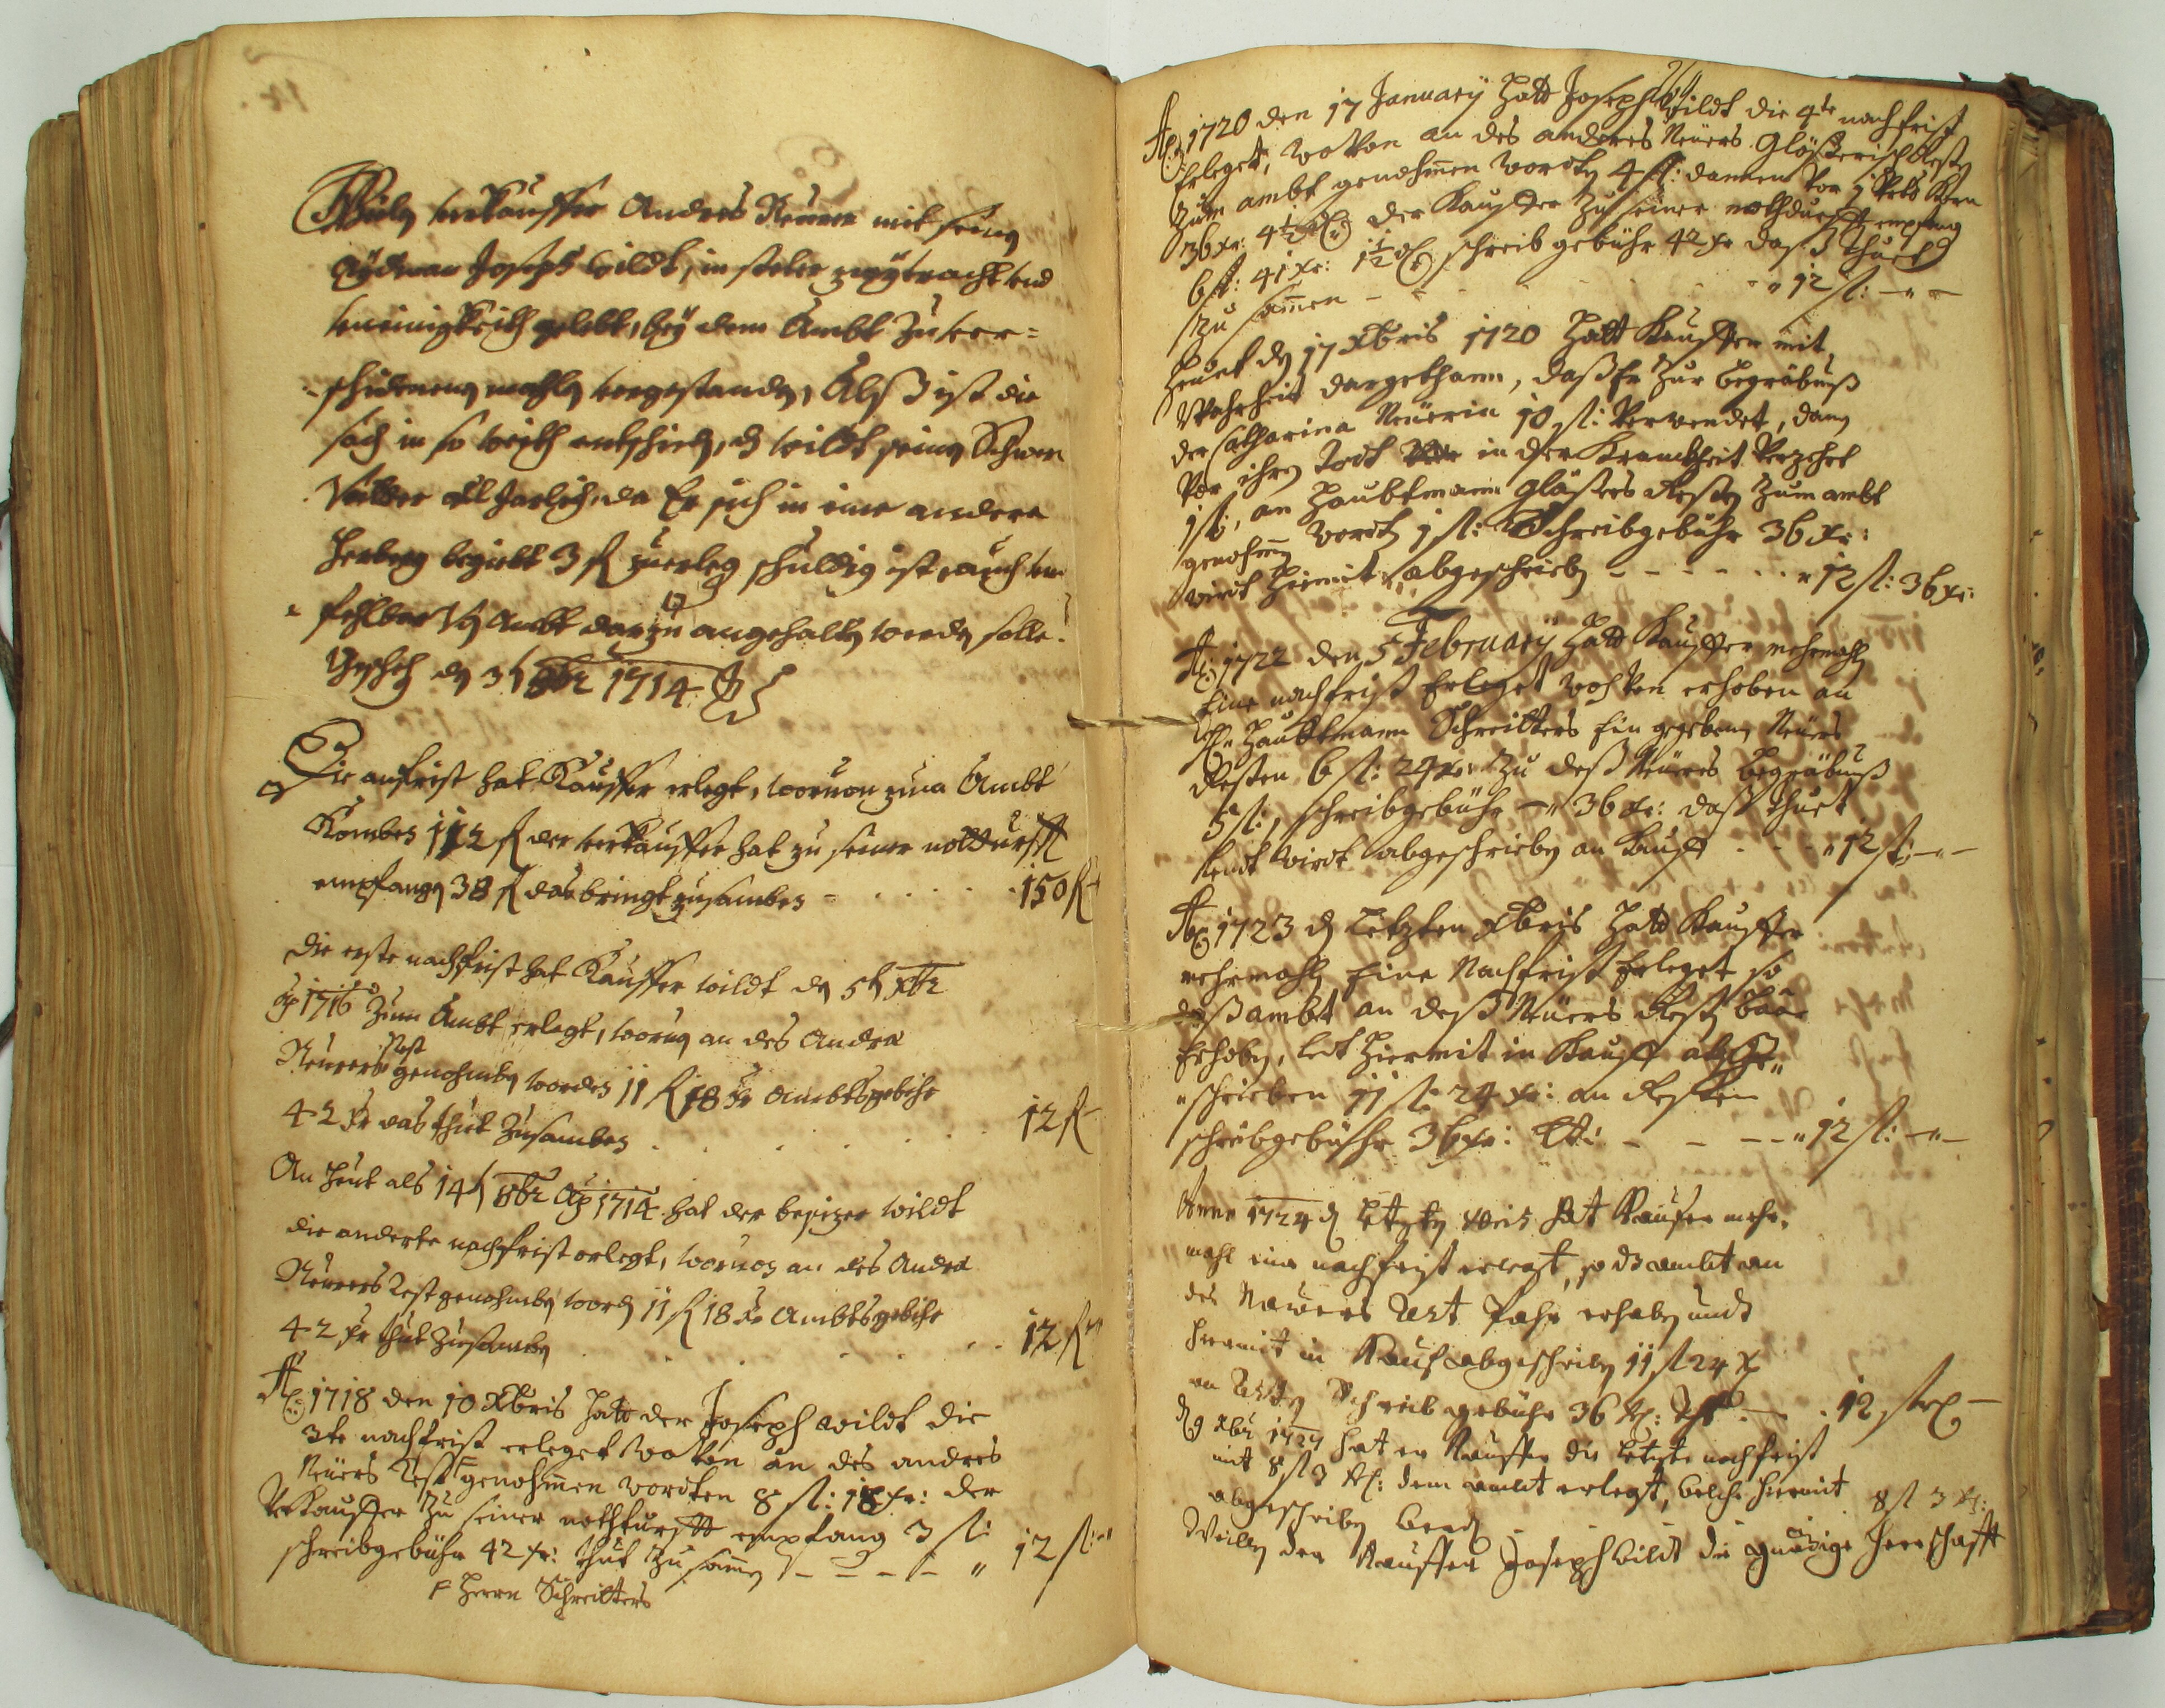 Weiln verkauffer Andres Neuer mit seinen
Aydman Joseph Wildt, in steter zwytracht und
uneinigkeith gelebt, bey dem Ambt zu ver=
schidenen mahln vorgestanden, Alß ist die
sach in so weith entschiden, dz Wildt seinen Schwer
Vatter all Jarlich, da Er sich in eine andere
Herberg begiebt 3 fl zuerlegen schuldig ist, auch un
fehlbar von Ambt darzu angehalten werden solle.
Geschehen den 3t 1714
Die anfrist hat Kauffer erlegt, wouon zum Ambt
Komben 112 fl der verkauffer hat zu seiner notdurfft
empfangen 38 fl das bringt zusamben - . . . . 150 fl
Die erste nachfrist hat Kauffer Wildt den 5t xbr
Ao 1716 Zum Ambt erlegt, wouon an des Andrea
Rest
Neuers genohmben worden 11 fl 18 kr Ambtsgebihr
42 kr das thut Zusamben . . . . . 12 fl
An Heut als 14t 8br Ao 1714 hat der besizer Wildt
die anderte nachfrist erlegt, wouon an des Andrea
Neuers Rest genohmben word 11 fl 18 kr Ambtsgebihr
42 kr thut Zusamben . . . . . 12 fl
Ao 1718 den 10 Xbris Hatt der Joseph Wildt die
3te nachfrist erleget wovon an des andres
Neuers Rest genohmen worden 8 fl: 18 kr: der
Verkauffer Zu seiner nothturfft empfang 3 fl:
schreibgebühr 42 kr: thut Zu samen - - - - " 12 fl: "
p Herrn Schreitters
Ao 1720 den 17 January Hatt Joseph Wildt die 4te nachfrist
Erleget, wovon an des anderes Neuers Gläserisch Resten
Zum ambt genohmen worden 4 fl: dannen vor 1 Korn
36 kr: 4½ der Kauffer Zu seiner nothdurfft empfang
6 fl: 41 kr: 1½ schreib gebühr 42 kr das thuet
Zu samen - - - - " 12 fl: - " -
Heunt den 17 Xbris 1720 Hatt Kauffer mit
Wahrheit dargethann, daß Er Zur Begräbnuß
der Catharina Neuerin 10 fl: Verwendet, dann
Vor ihren Todt in der Kranckheit Verzehrt
1 fl:, an Haubtmann Gläsers Resten Zum ambt
genohmen worden 1 fl: Schreibgebühr 36 kr:
wirdt Hiermit abgeschrieben - - - - . . " 12 fl: 36 kr:
Ao 1722 den 5 February Hatt Kauffer mehrmahln
Eine nachfrist Erleget wohvon erhoben an
Haubtmann Schreitters Ein gegebene Neuers
Resten 6 fl: 24 kr: Zu deß Neuers Begräbnuß
5 fl:, schreibgebühr - " 36 kr: daß thuet
wirdt abgeschrieben an Kauff - - - " 12 fl: - " -
Ao 1723 den Letzten Xbris Hatt Kauffer
mehrmahln Eine Nachfrist Erleget so
daß ambt an deß Neuers Resten baar
Erhoben, Hiermit in Kauff abge-
schrieben 11 fl: 24 kr: an Resten
schreibgebühr 36 kr: - - - - " 12 fl: - " -
Anno 1724 den letzten Xbris hat Kaufer mehr
mahl eine nachfrist erlegt, so dz ambt an
des Neuers Rest erhaben undt
hiermit in Kauf abgeschriben 11 fl 24 x
an Resten Schreib gebühr 36 kr: . - . 12 fl -
den 9 xbr 1727 hat er Kauffer die letzte nachfrist
mit 8 fl 3 kr: dem ambt erlegt, welche hiermit
abgeschriben werden 8 fl 3 kr:
Weilln der Kauffer Joseph Wildt die gnädige Herrschafft